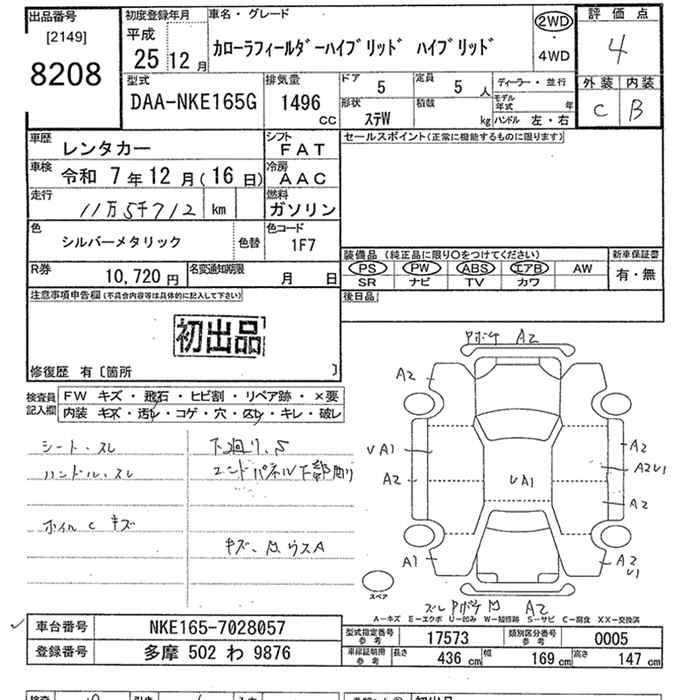 出品番号
[2149]
8208
初度登録年月
平成
25 12月
車名・グレード
カローラフィールダーハイブリッド ハイブリッド
2WD
・
4WD
評価点
4
外装 内装
C B
型式
DAA-NKE165G
排気量
1496
cc
ドア
5
定員
5 人
形状
ステW
積載
kg
ディーラー・並行
モデル年式 年
ハンドル 左・右
車歴
レンタカー
シフト
FAT
車検
令和 7年12月(16日)
冷房
AAC
走行
11万5千712 km
燃料
ガソリン
色
シルバーメタリック
色替
色コード
1F7
R券
10,720円
名変通知期限
月 日
セールスポイント(正常に機能するものに限ります)
装備品(純正品に限り○をつけてください)
PS PW ABS エアB AW
SR ナビ TV カワ
新車保証書
有・無
後日品
注意事項申告欄(不具合内容等は具体的に記入して下さい)
初出品
修復歴 有〔箇所 〕
検査員記入欄
FW キズ・飛石・ヒビ割・リペア跡・×要
内装 キズ・汚レ・コゲ・穴・スレ・キレ・破レ
シート、スレ
ハンドル、スレ
ホイルC キズ
下廻り、S
エンドパネル下部
A2
A2
VA1
A2
A1
UA1
A2
A2U1
A2
A2
U1
A2
スペア
A-キズ E-エクボ U-凹み W-補修跡 S-サビ C-腐食 XX-交換済
車台番号
NKE165-7028057
登録番号
多摩 502 わ 9876
型式指定番号
参考
17573
類別区分番号
参考
0005
車検証明書
参考
長さ 436 cm
幅 169 cm
高さ 147 cm